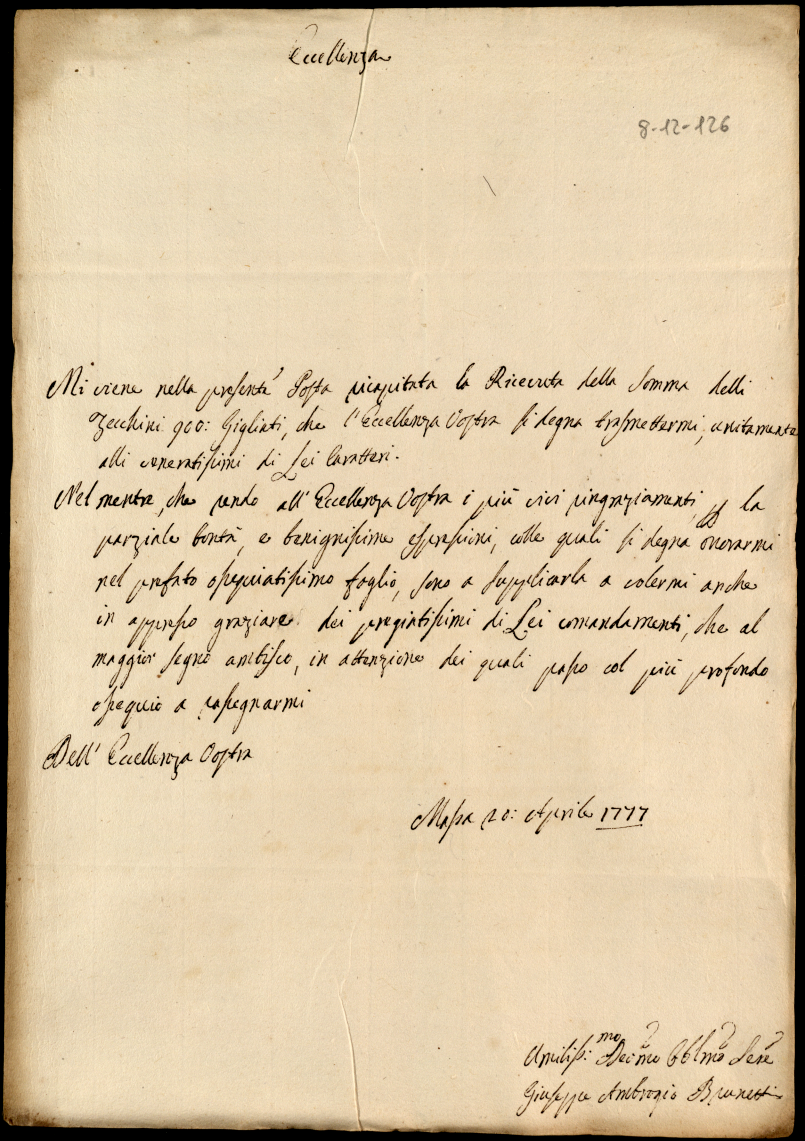 Eccellenza
8-12-126
Mi viene nella presente Posta ricapitata la Ricevuta della Somma delli
Zecchini 900: Gigliati, che l'Eccellenza Vostra si degna trasmettermi, unitamente
alli veneratissimi di Lei Caratteri.
Nel mentre, che rendo all'Eccellenza Vostra i più vivi ringraziamenti, la
parziale bontà, e benignissime espressioni, colle quali si degna onorarmi
nel prefato ossequiatissimo foglio, sono a supplicarla a volermi anche
in appresso graziare dei pregiatissimi di Lei comandamenti, che al
maggior segno ambisco, in attenzione dei quali passo col più profondo
ossequio a rassegnarmi
Dell'Eccellenza Vostra
Massa 20: Aprile 1777
Umiliss:mo Devmo Obblmo Sere
Giuseppe Ambrogio Brunetti